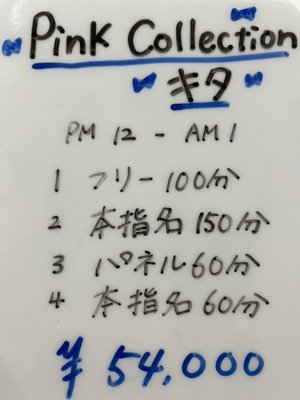 Pink Collection
キタ
PM 12 - AM 1
1 フリー 100分
2 本指名 150分
3 パネル 60分
4 本指名 60分
¥ 54,000